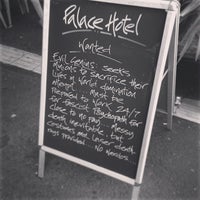 Palace Hotel
Wanted
Evil Genius: seeks
Minions to sacrifice their
lifes in World domination
attempt... Must be
Prepared to work 24/7
for fascist Psychopath for
close to no pay... Messy
death inevitable... but
costumes and laser death
rays provided... No weirdos.